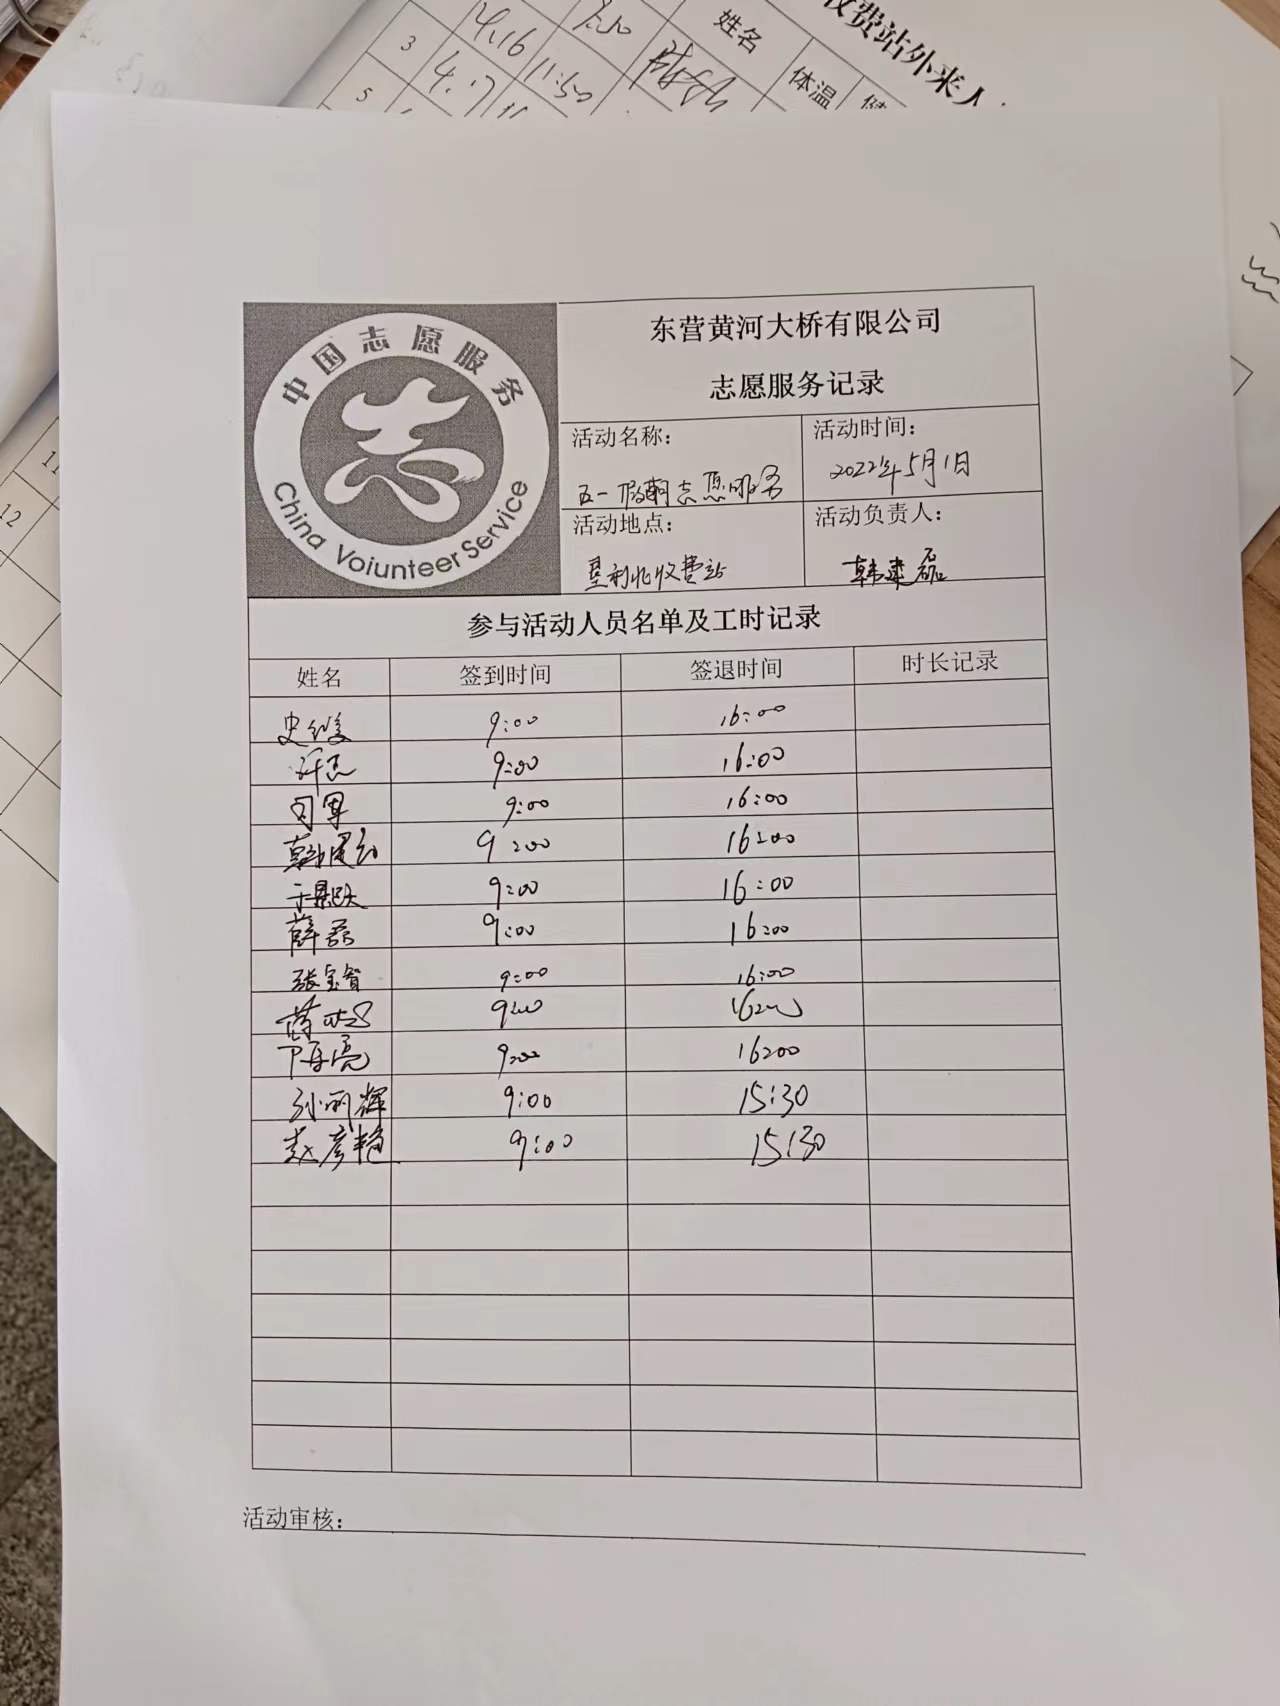 收费站外来人
姓名
体温
3
4.16
5
4.17
11:50
11
12
中国志愿服务
China Voiunteer Service
东营黄河大桥有限公司
志愿服务记录
活动名称：
五一假期志愿服务
活动时间：
2022年5月1日
活动地点：
垦利北收费站
活动负责人：
韩建磊
参与活动人员名单及工时记录
姓名 签到时间 签退时间 时长记录
9:00 16:00
许杰 9:00 16:00
司军 9:00 16:00
9:00 16:00
于景跃 9:00 16:00
薛磊 9:00 16:00
张宝智 9:00 16:00
9:00 16:00
9:00 16:00
孙丽辉 9:00 15:30
赵彦艳 9:00 15:30
活动审核：